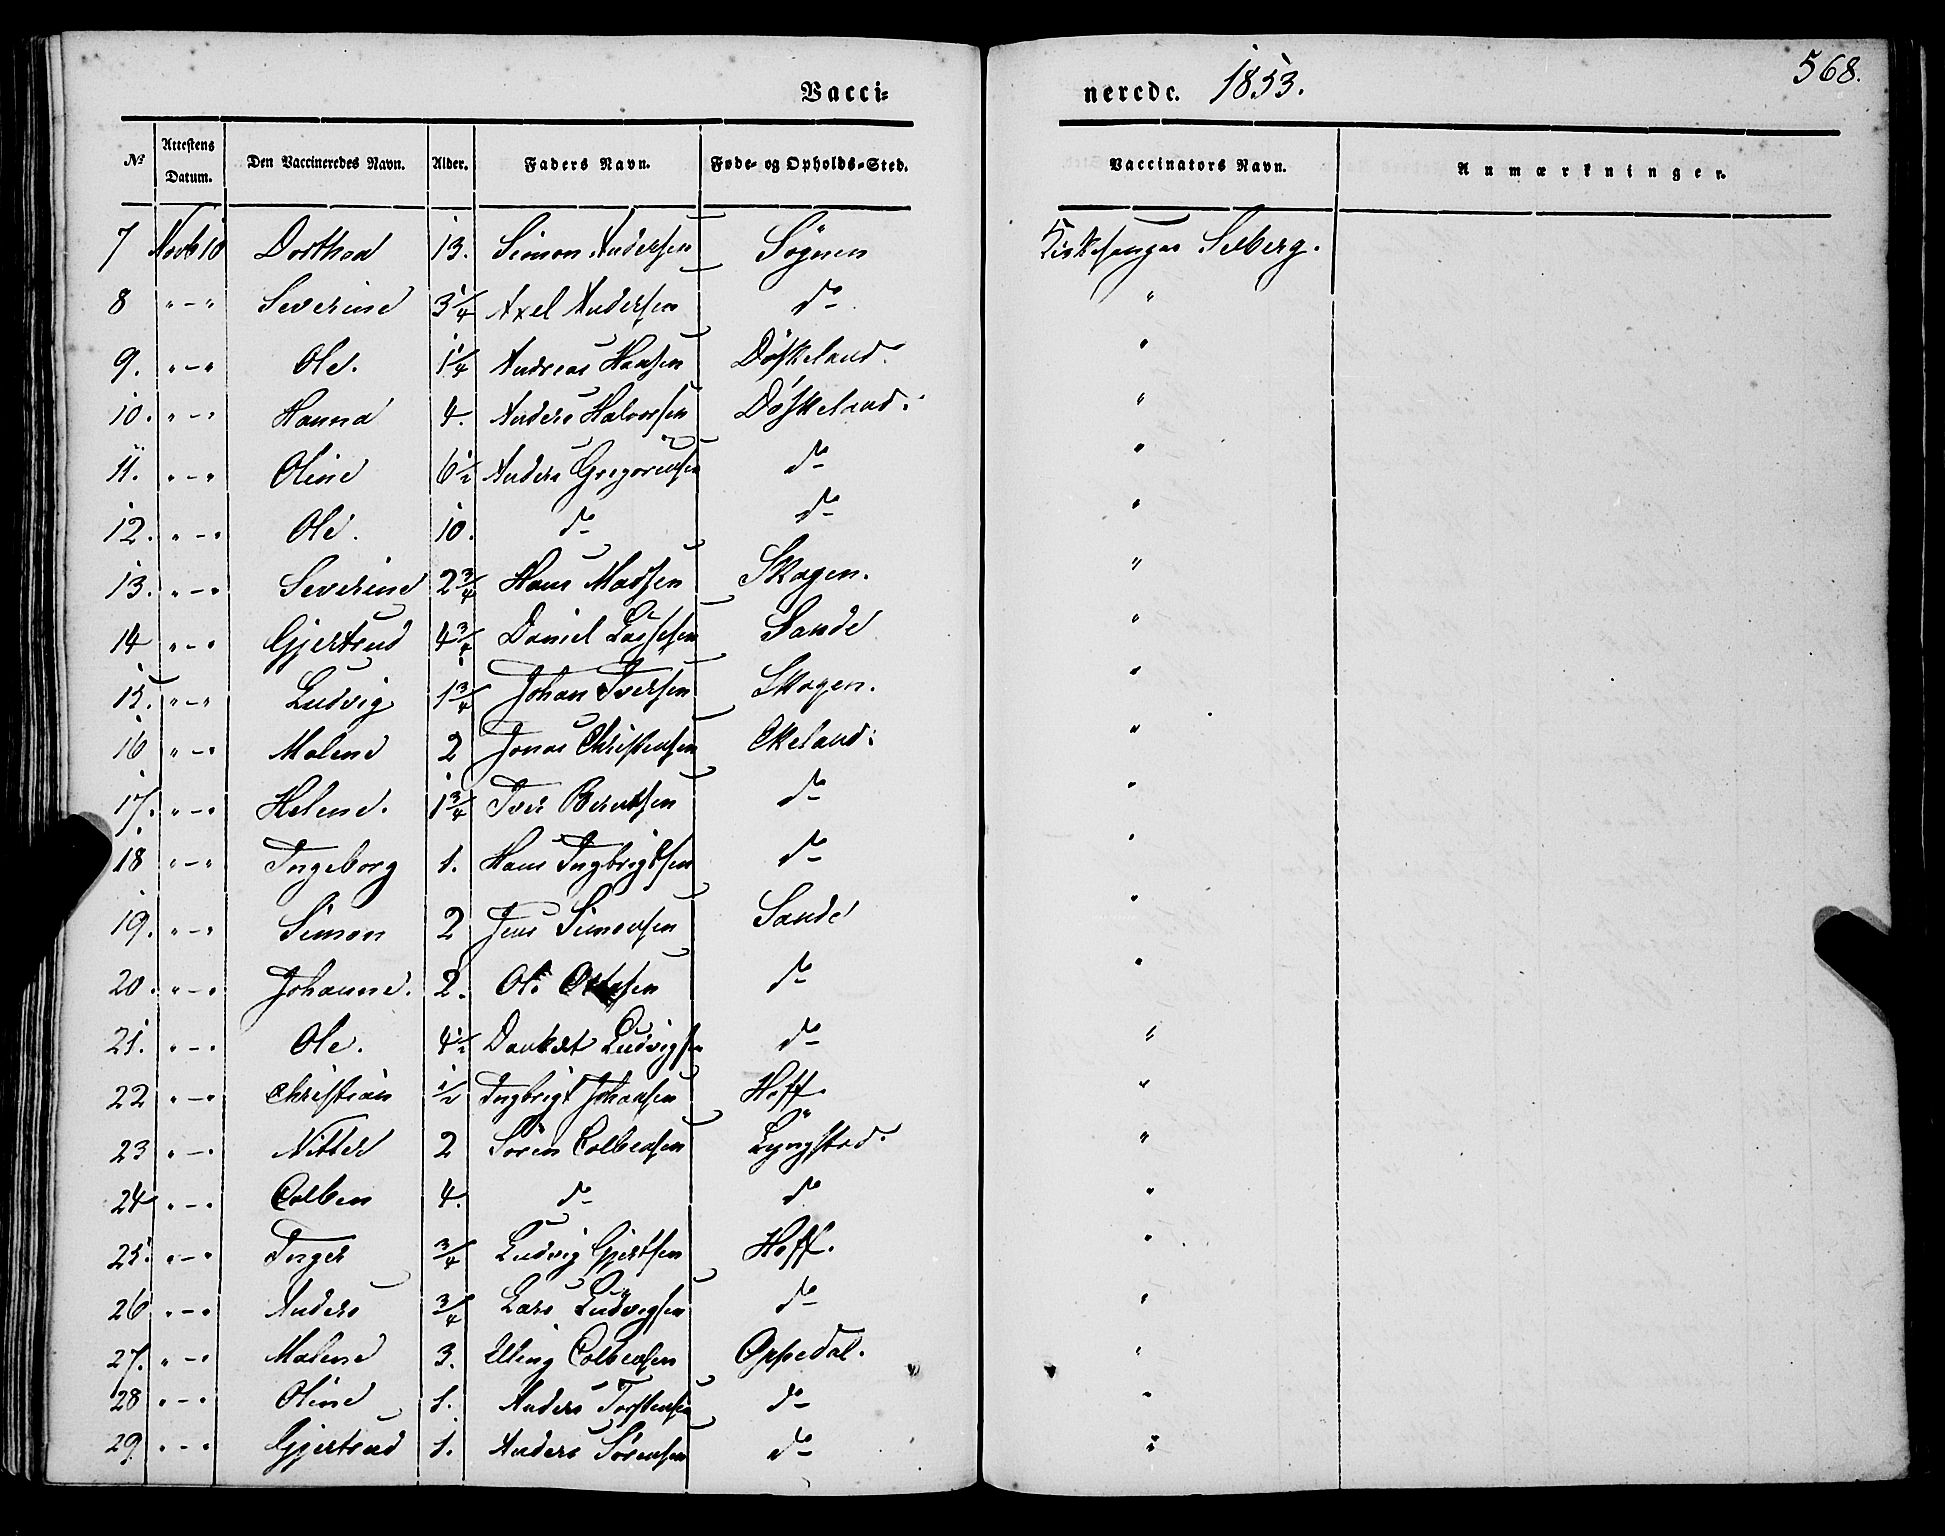 Vacci= nerede. 1853. 568.
No Attestens Datum. Den Vaccineredes Navn. Alder. Faders Navn. Føde- og Opholds-Sted. Vaccinators Navn. Anmærkninger.
7 Novb 10 Dorthea 13. Simon Andersen Sögnen Kirkesanger Selberg.
8 " - " Severine 3 1/4 Axel Andersen do "
9. " - " Ole. 1 1/4 Andreas Hansen Döskeland. "
10. " - " Hanna 4. Anders Halvorsen Döskeland. "
11. " - " Oline 6 1/2 Anders Gregoriusen do "
12. " - " Ole. 10. do do "
13. " - " Severine 2 3/4 Hans Madsen Skagen. "
14 " - " Gjertrud 4 3/4 Daniel Lassesen Sande "
15. " - " Ludvig 1 3/4 Johan Iversen Skagen. "
16 " - " Malene 2 Jonas Christensen Ekeland. "
17. " - " Helene. 1 3/4 Iver Berentsen do "
18 " - " Ingeborg 1. Hans Ingbrigtsen do "
19. " - " Simon 2 Jens Simonsen Sande "
20. " - " Johanne. 2. Ole do "
21. " - " Ole. 4 1/2 Dankert Ludvigsen do "
22 " - " Christian 1/2 Ingbrigt Johansen Hoff. "
23 " - " Nitter 2 Sören Colbensen Lyngstad. "
24 " - " Colben 4. do do "
25. " - " Inger 3/4 Ludvig Gjertsen Hoff. "
26 " - " Anders 3/4 Lars Ludvigsen do "
27. " - " Malene 3. Elling Colbensen Oppedal. "
28 " - " Oline 1. Anders Torstensen do "
29 " - " Gjertrud 1. Anders Sörensen do "